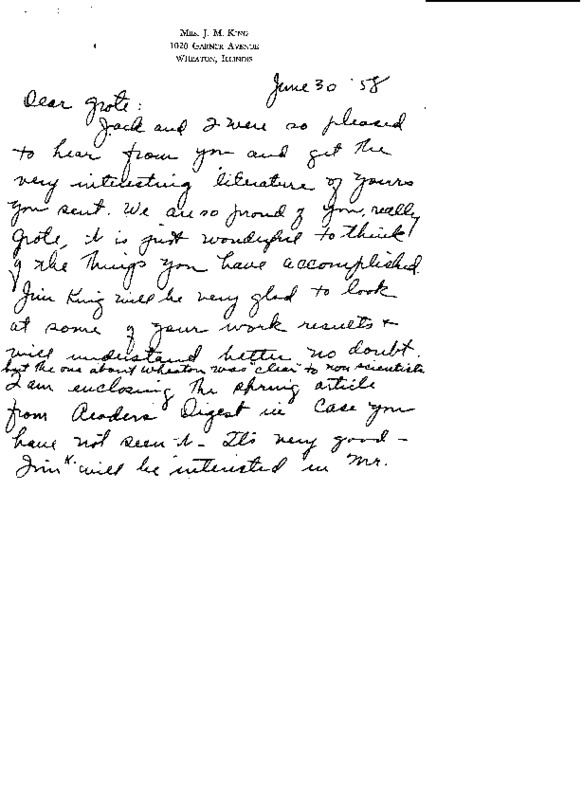 MRS. J. M. KING
1020 GARNER AVENUE
WHEATON, ILLINOIS
June 30 '58
Dear Grote:
Jack and I were so pleased
to hear from you and get the
very interesting literature of yours
you sent. We are so proud of you, really
Grote, it is just wonderful to think
of the things you have accomplished.
Jim King will be very glad to look
at some of your work results +
will understand better no doubt.
but the one about Wheaton was "clear" to non scientists
I am enclosing the spring article
from Readers Digest in case you
have not seen it - It's very good -
Jim K. will be interested in Mr.